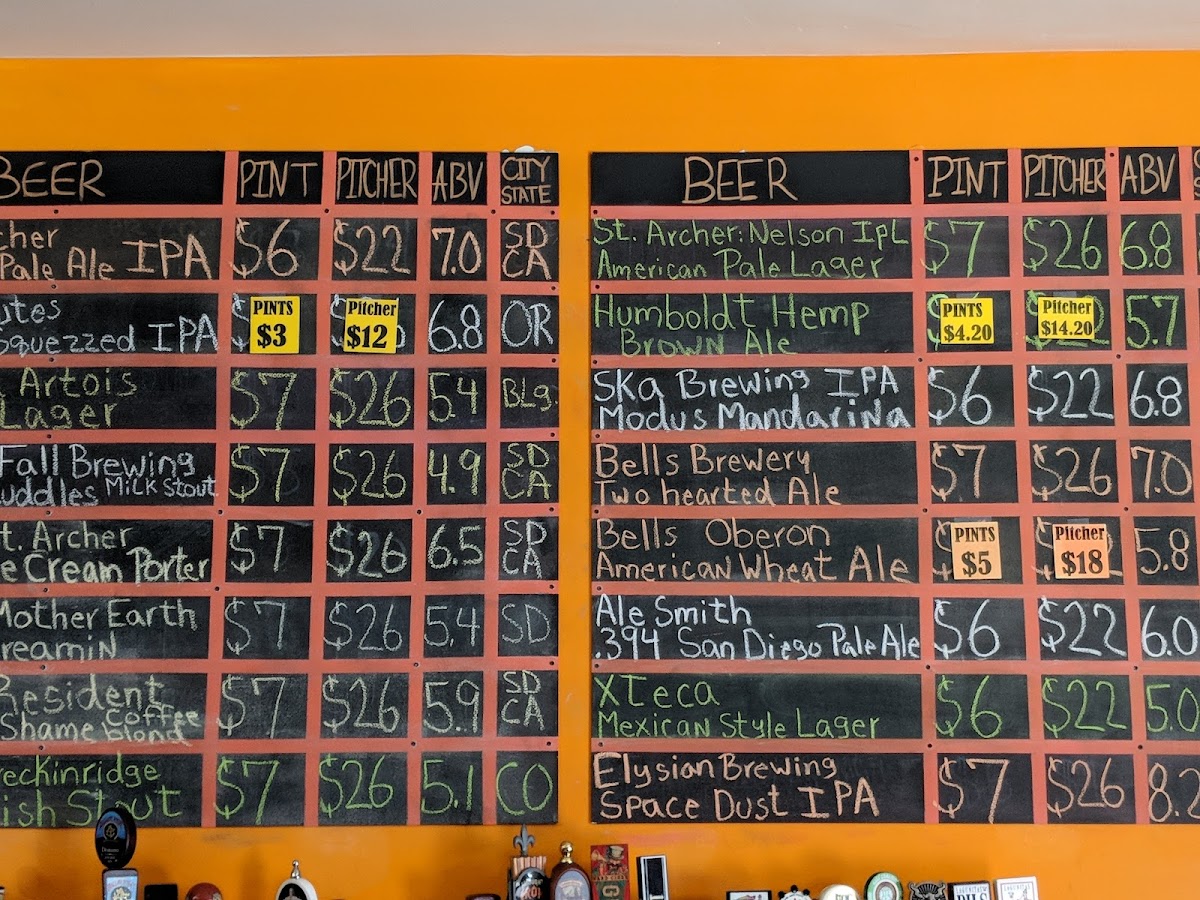 BEER PINT PITCHER ABV CITY STATE
cher
Pale Ale IPA $6 $22 7.0 SD CA
utes
squezzed IPA PINTS $3 Pitcher $12 6.8 OR
Artois
Lager $7 $26 5.4 BLg.
Fall Brewing
uddles Milk Stout $7 $26 4.9 SD CA
t. Archer
e Cream Porter $7 $26 6.5 SD CA
Mother Earth
reamiN $7 $26 5.4 SD
Resident
Shame Coffee blond $7 $26 5.9 SD CA
reckinridge
ish Stout $7 $26 5.1 CO
BEER PINT PITCHER ABV
St. Archer: Nelson IpL
American Pale Lager $7 $26 6.8
Humboldt Hemp
Brown Ale PINTS $4.20 Pitcher $14.20 5.7
Ska Brewing IPA
Modus Mandarina $6 $22 6.8
Bells Brewery
Two hearted Ale $7 $26 7.0
Bells Oberon
American Wheat Ale PINTS $5 Pitcher $18 5.8
Ale Smith
.394 San Diego Pale Ale $6 $22 6.0
XTeca
Mexican Style Lager $6 $22 5.0
Elysian Brewing
Space Dust IPA $7 $26 8.2